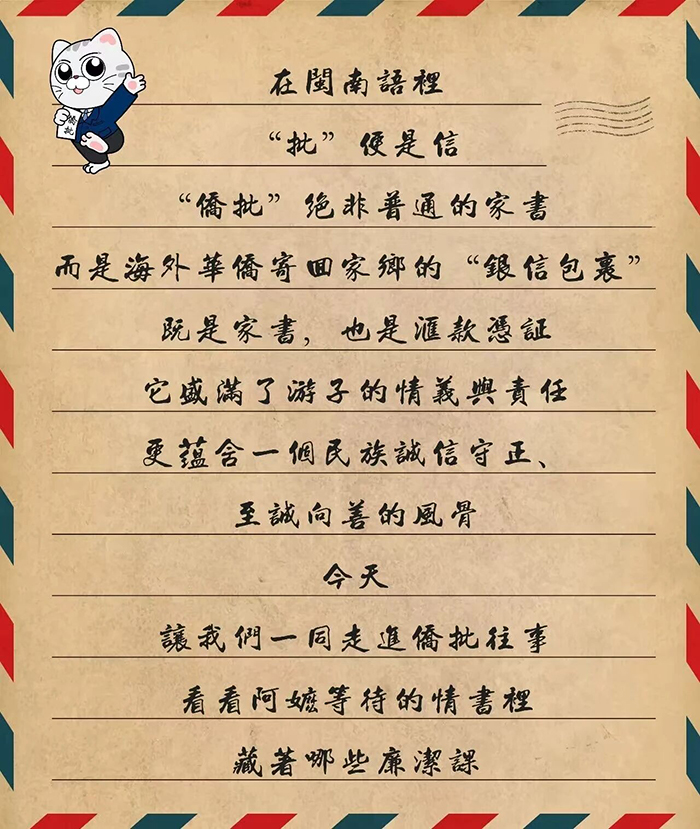 在閩南語裡
“批”便是信
“僑批”絕非普通的家書
而是海外華僑寄回家鄉的“銀信包裹”
既是家書，也是滙款憑証
它盛滿了游子的情義與責任
更蘊含一個民族誠信守正、
至誠向善的風骨
今天
讓我們一同走進僑批往事
看看阿嬤等待的情書裡
藏著哪些廉潔課